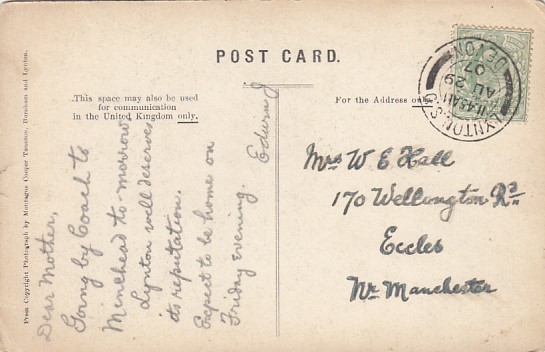 POST CARD.
This space may also be used
for communication
in the United Kingdom only.
For the Address only.
LYNTON S.O
11.45AM
AU 29
07
DEVON
Dear Mother,
Going by Coach to
Minehead to-morrow
Lynton well deserves
its reputation.
Expect to be home on
Friday evening.
Mrs W E Hall
170 Wellington Rd
Eccles
Nr Manchester
From Copyright Photograph by Montague Cooper Taunton, Burnham and Lynton.